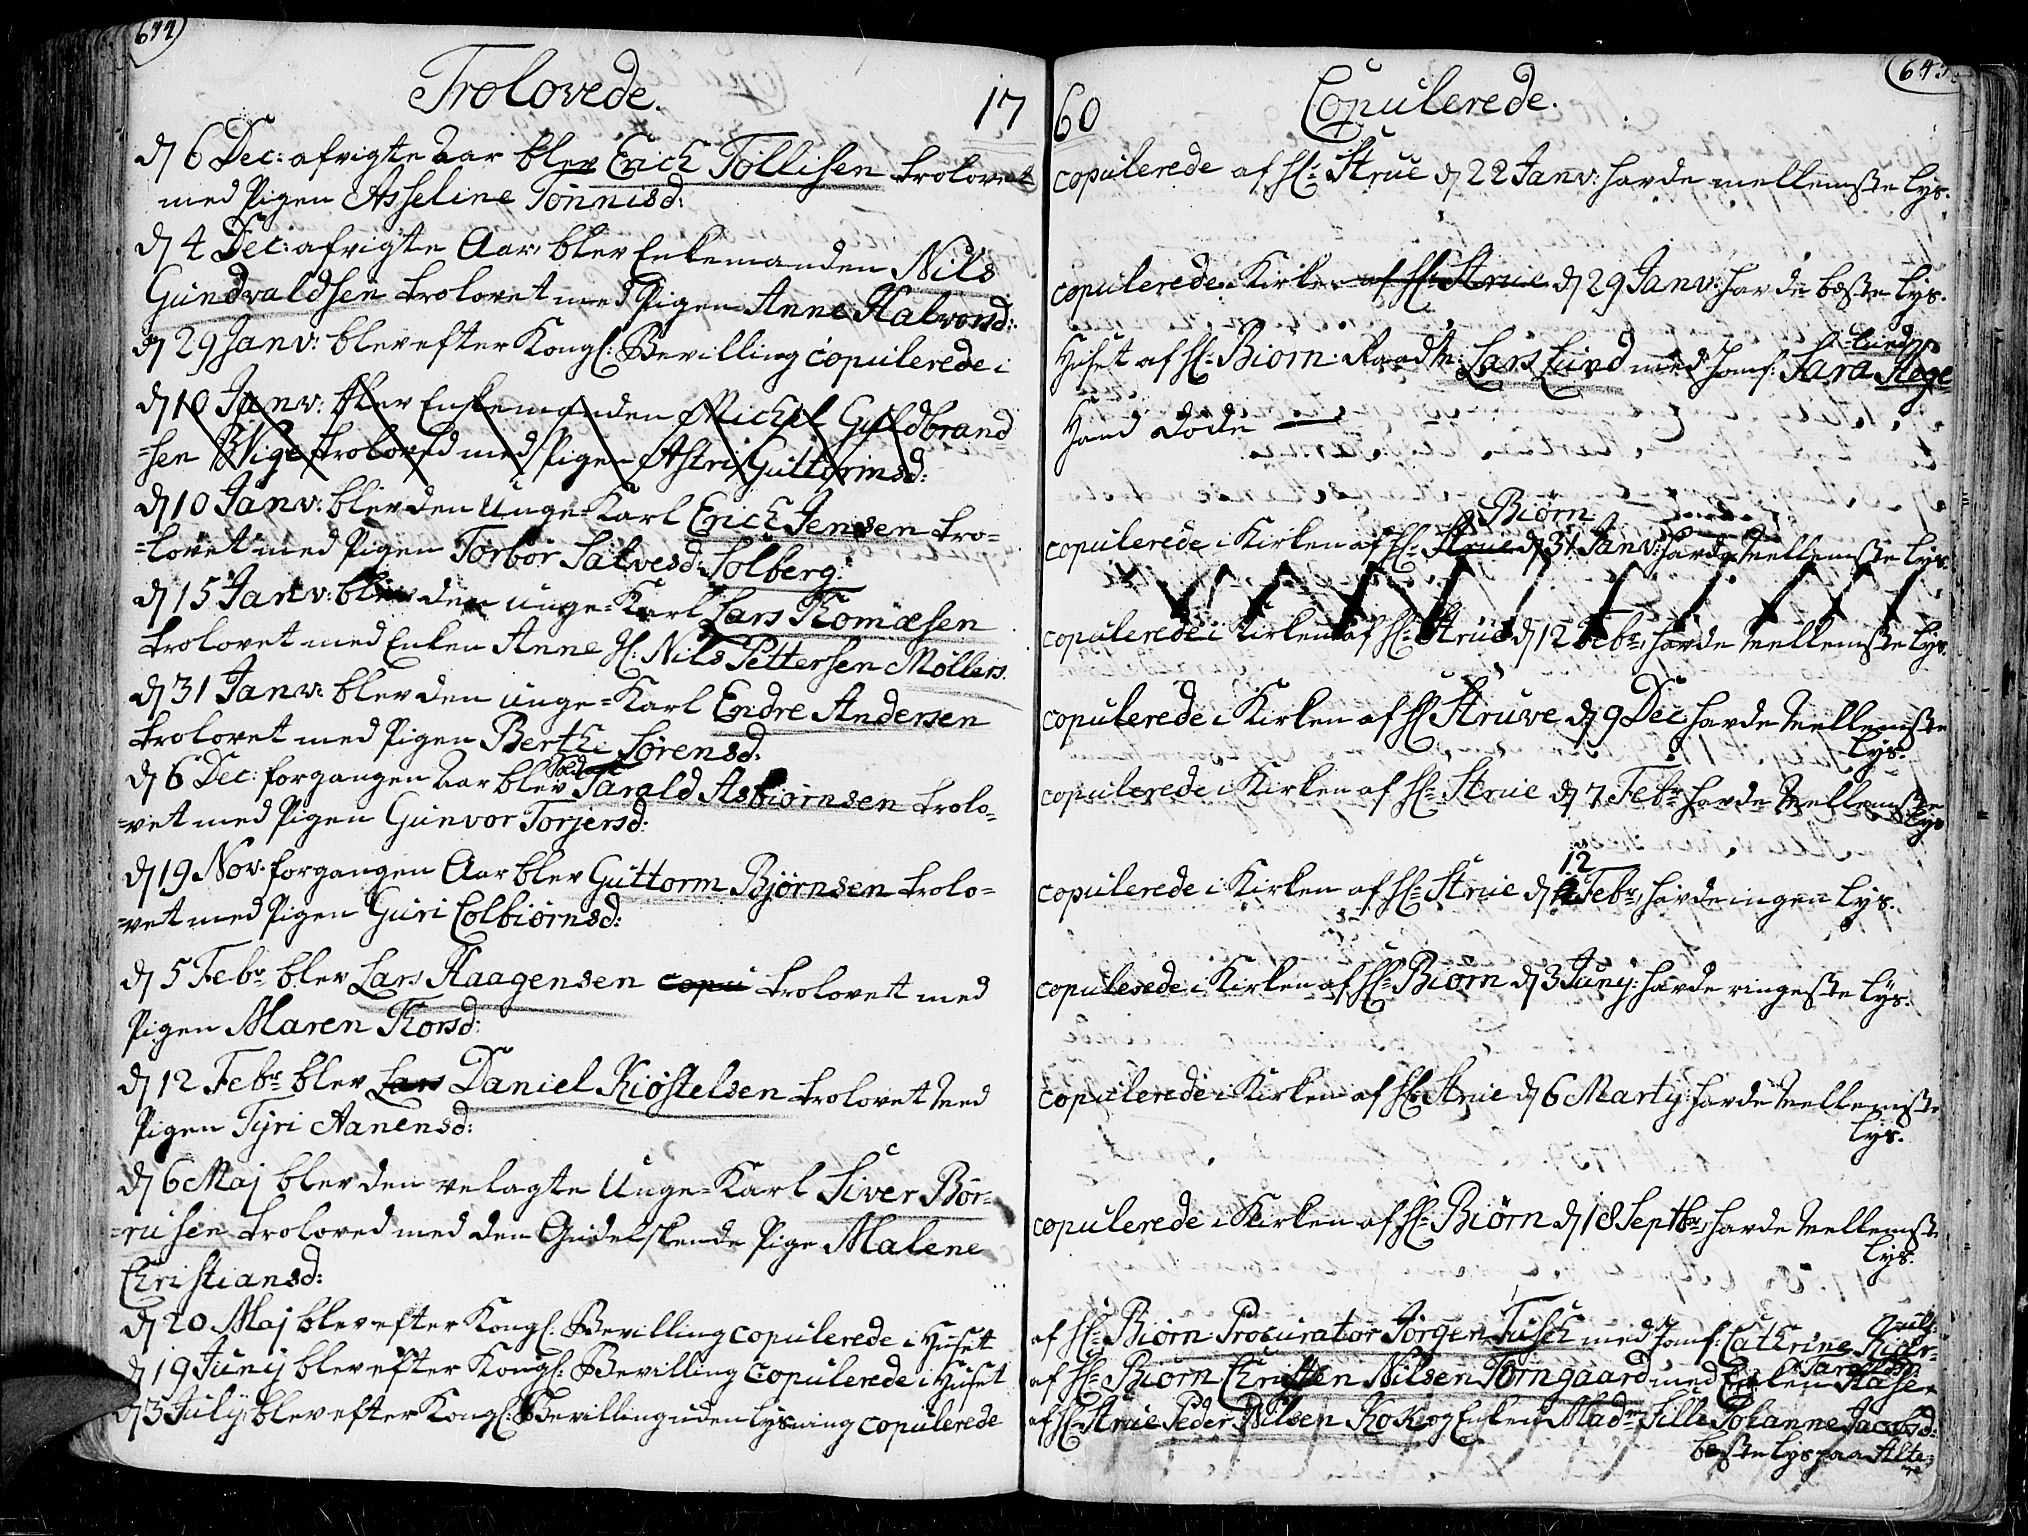 644
Trolovede.
17
d 6 Dec: afvigte Aar blev Erich Tøllisen trolovet
med Pigen Asseline Tønnisd:
d 4 Dec: afvigte Aar blev Enkemanden Nils
Gundvaldsen trolovet med Pigen Anne Halvorsd:
d 29 Janv: blev efter Kongl: Bevilling copulerede i
d 10 Janv: blev Enkemanden Michel Guldbrand=
=sen Vige trolovd med Pigen Astri Guttormsd:
d 10 Janv: blev den Unge-Karl Erich Jensen tro=
=lovet med Pigen Torbor Salvesd: Solberg:
d 15 Janv: blev den unge=Karl Lars Thomæsen
trolovet med Enken Anne Sl: Nils Pettersen Møllers.
d 31 Janv: blev den unge=Karl Endre Andersen
trolovet med Pigen Berthe Sørensd:
d 6 Dec: forgangen Aar blev Sarald Asbiørnsen trolo
=vet med Pigen Gunvor Torjersd:
d 19 Nov: forgangen Aar blev Guttorm Bjørnsen trolo=
=vet med Pigen Guri Colbiørnsd:
d 5 Febr: blev Lars Haagensen copu trolovet med
Pigen Maren Thorsd:
d 12 Febr: blev Lars Daniel Kiøstelsen trolovet med
Pigen Tyri Aanensd:
d 6 Maj blev den velagte Unge=Karl Siver Bør=
=rusen troloved med den Gudelskende Pige Malene
Christiansd:
d 20 Maj blev efter Kongl: Bevilling copulerede i Huset
d 19 Juny blev efter Kongl: Bevilling copulerede i Huset
d 3 July blev efter Kongl: Bevilling uden lysning copulerede
645
60
Copulerede.
copulerede af Hr: Strue d 22 Janv: havde mellemste Lys.
copulerede i Kirken af Hr: Strue d 29 Janv: havde beste Lys.
Huset af Hr: Biørn: Raadm: Lars Lund med Jomf: Sara Hege
=lund
Hand døde
Biørn
copulerede i Kirken af Hr: Strue d 31 Janv: havde Mellemste Lys.
copulerede i Kirken af Hr: Strue d 12 Febr: havde Mellemste Lys.
copulerede i Kirken af Hr: Struve d 9 Dec: havde Mellemste
Lys.
copulerede i Kirken af Hr: Strue d 7 Febr: havde Mellemste
Lys
12
copulerede i Kirken af Hr: Strue d Febr: havde ingen Lys.
copulerede i Kirken af Hr: Biørn d 3 Juny: havde ringeste Lys.
copulerede i Kirken af Hr: Strue d 6 Marty: havde Mellemste
Lys.
copulerede i Kirken af Hr: Biørn d 18 Septbr: havde Mellemste
Lys.
af Hr: Biørn Procurator Jørgen Tusch med Jomf: Cathrine Kiær=
af Hr: Biørn Christen Nilsen Torngaard med Enken
af Hr: Strue Peder Nilsen Kok og Enken Mad: Sille Johanne Jacobsd:
beste Lys paa Alte=